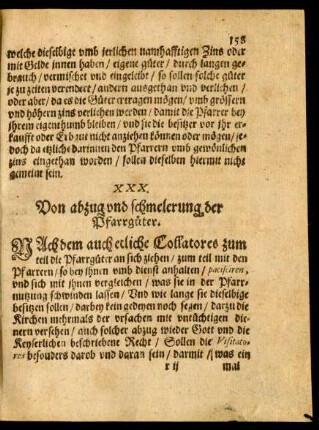 158
welche dieselbige vmb jerlichen namhafftigen Zins oder
mit Gelde innen haben / eigene güter / durch langen ge-
brauch / vermischet vnd eingeleibt / so sollen solche güter
je zu zeiten verendert / andern ausgethan vnd verlichen /
oder aber / da es die Güter ertragen mögen / vmb grössern
vnd höhern zins verlichen werden / damit die Pfarrer bey
jhrem eigenthumb bleiben / vnd sie die besitzer vor jhr er-
kaufft oder Erbgut nicht anziehen können oder mögen / je-
doch da etzliche darinnen den Pfarrern vmb gewönlichen
zins eingethan worden / sollen dieselben hiermit nicht
gemeint sein.
XXX.
Von abzug vnd schmelerung der
Pfarrgüter.
NAch dem auch etliche Collatores zum
teil die Pfarrgüter an sich ziehen / zum teil mit den
Pfarrern / so bey jhnen vmb dienst anhalten / pacisciren,
vnd sich mit jhnen vergleichen / was sie in der Pfarr-
nutzung schwinden lassen / Vnd wie lange sie dieselbige
besitzen sollen / darbey kein gedeyen noch segen / darzu die
Kirchen mehrmals der vrsachen mit vntüchtigen die-
nern versehen / auch solcher abzug wieder Gott vnd die
Keyserlichen beschriebene Recht / Sollen die Visitato-
res besonders darob vnd daran sein / darmit / was ein
r ij mal